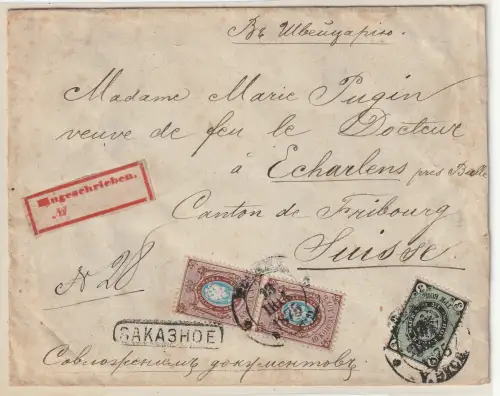 Въ Швейцарію.
Madame Marie Pugin
veuve de feu le Docteur
à Echarlens près Bulle
Canton de Fribourg
Suisse
Eingeschrieben.
№
N 28
ЗАКАЗНОЕ
Совложеніемъ документовъ